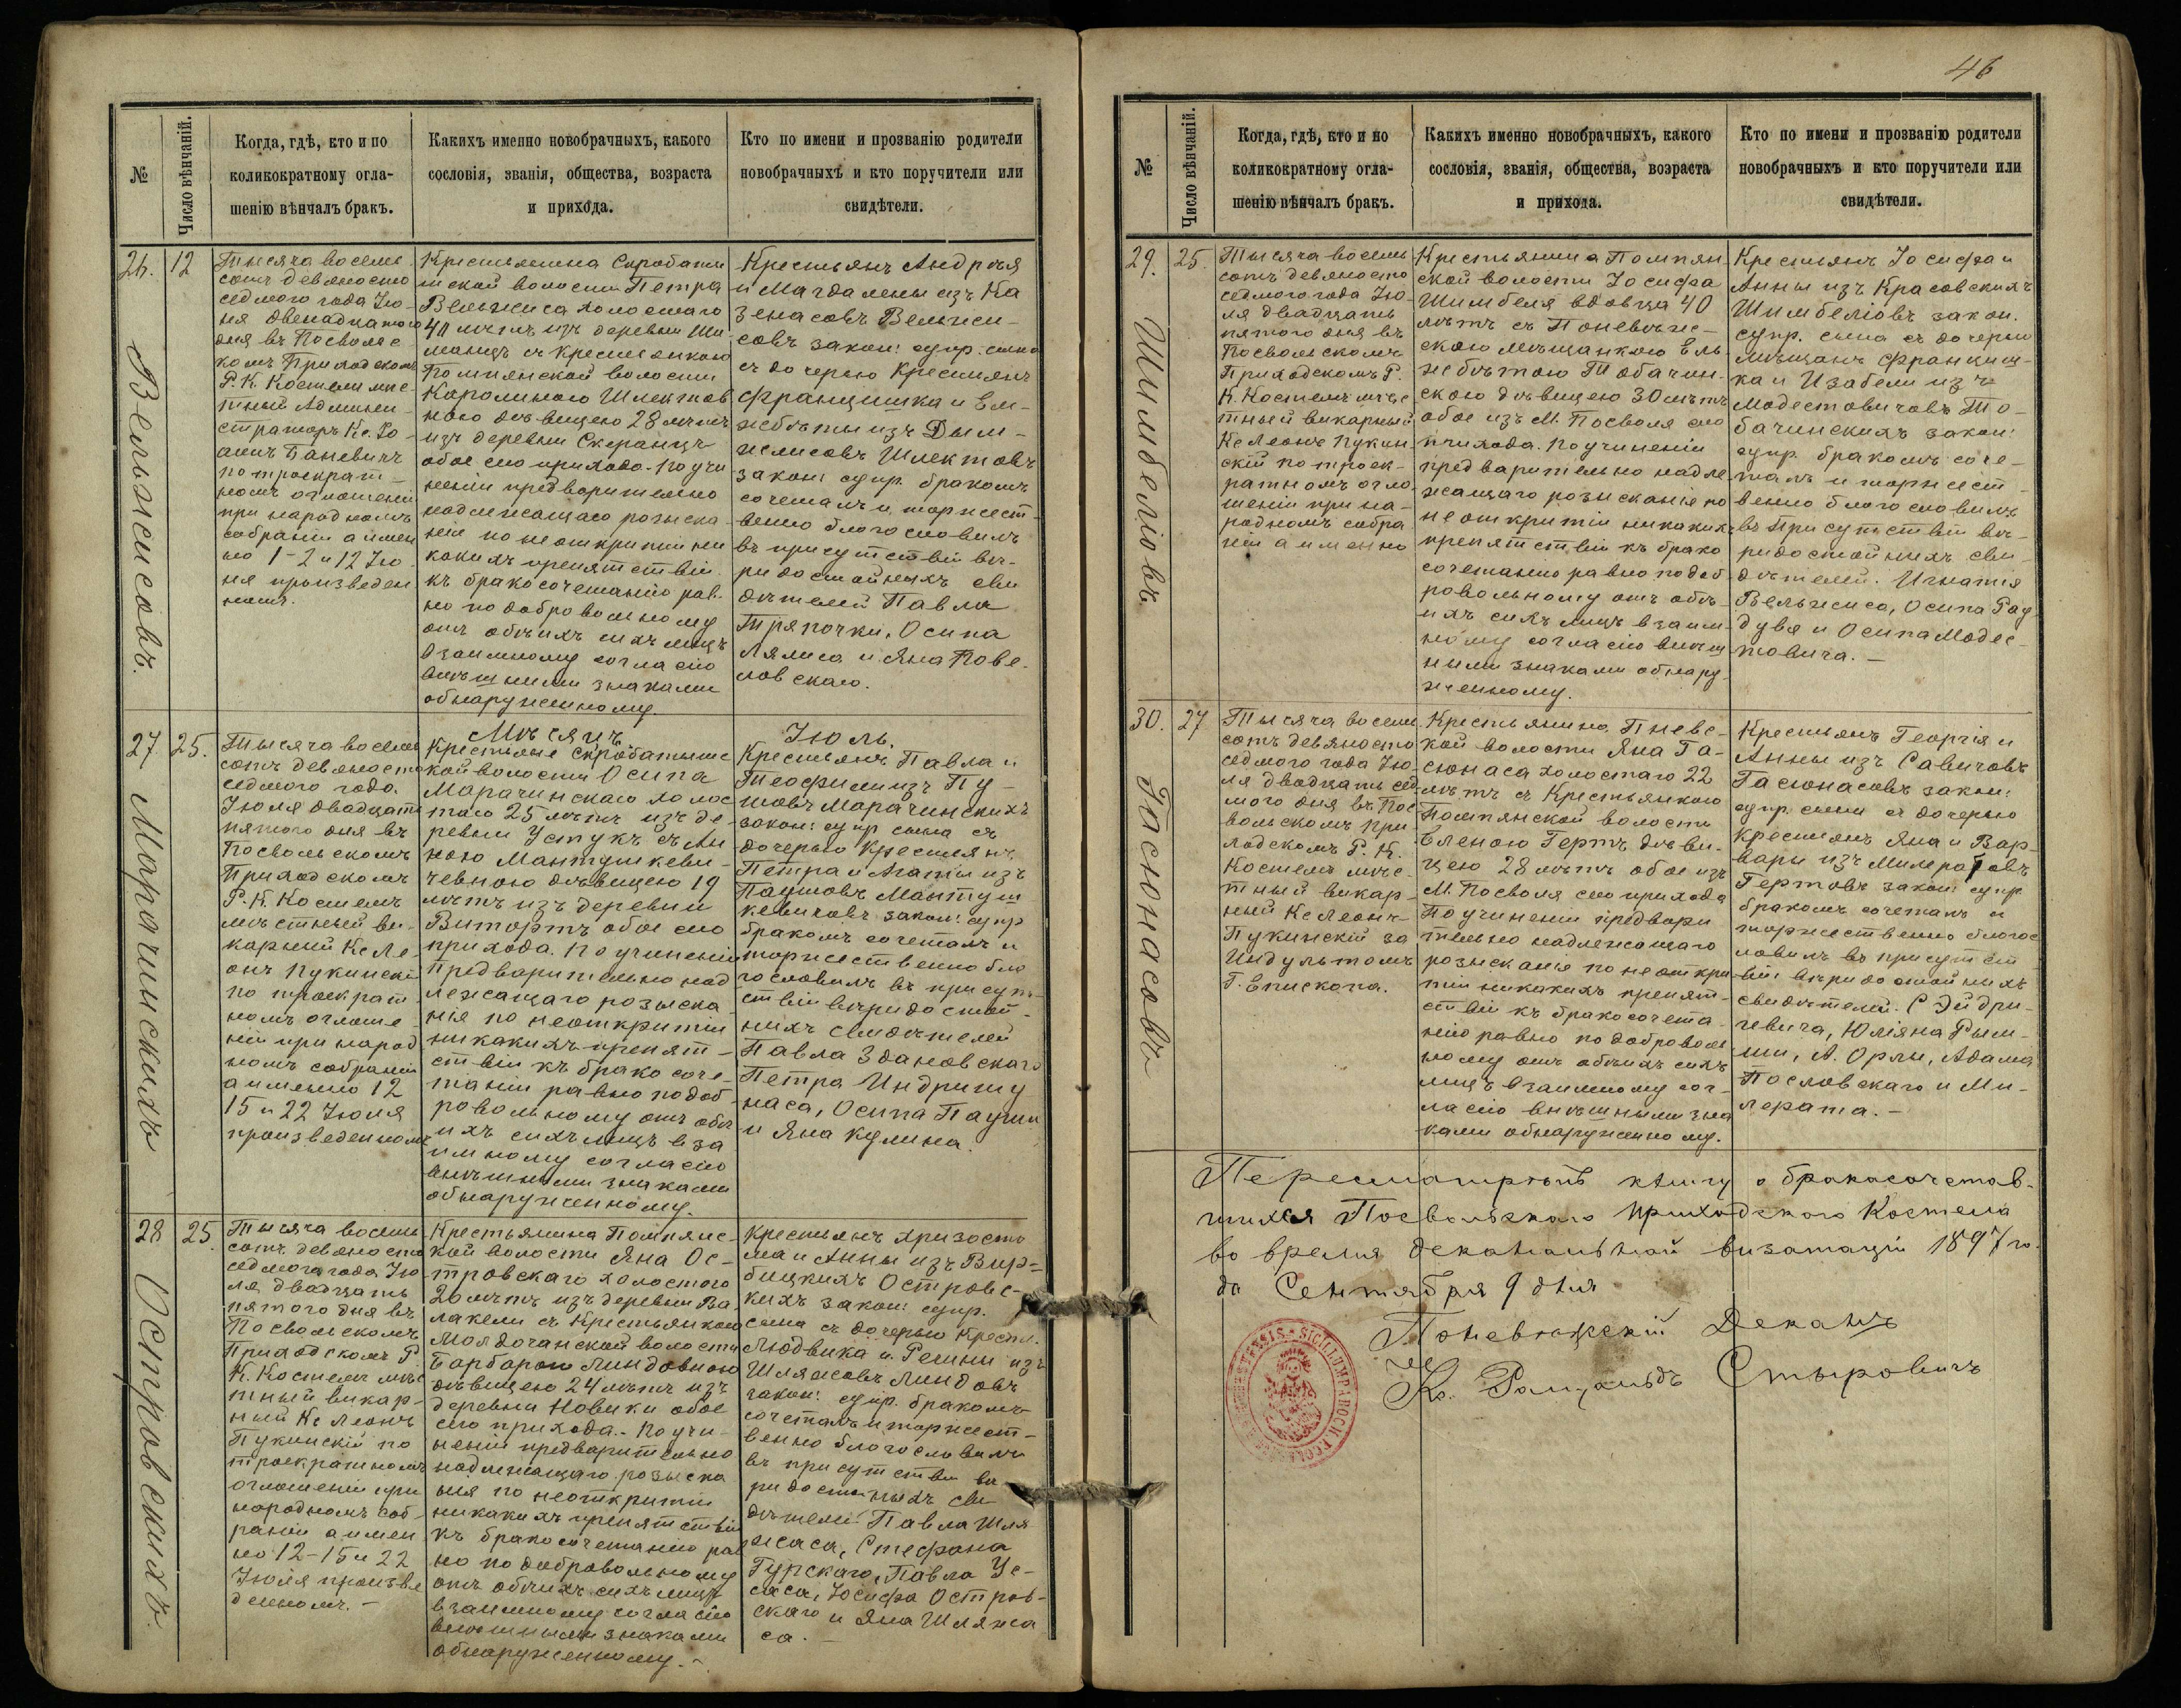 46
№
Число вѣнчаній.
Когда, гдѣ, кто и по
коликократному огла-
шенію вѣнчалъ бракъ.
Какихъ именно новобрачныхъ, какого
сословія, званія, общества, возраста
и прихода.
Кто по имени и прозванію родители
новобрачныхъ и кто поручители или
свидѣтели.
26.
12
Вельжисовъ.
Тысяча восемь
сотъ девяносто
седмого года Iю-
ня двенадцатого
дня въ Посволс-
комъ Приходскомъ
Р. К. Костели мѣс-
тный Админи-
страторъ Кс. Iо-
аннъ Баневичъ
по троекрат-
номъ оглошеніи
при народномъ
собраніи а имен
но 1-2 и 12 Iю
ня произведен
номъ.
Крестьянина Скробаты
шской волости Петра
Вельжиса холостаго
40 лѣтъ изъ деревни Ши
манцъ съ крестьянкою
Помпянской волости
Каролиною Шлектов
ною дѣвицею 28 лѣтъ
изъ деревни Скеранцъ
обое сего прихода. По учи
неніи предварительно
надлежащаго розыска-
нія по неоткрытіи ни
какихъ препятствій
къ бракосочетанію рав-
но по добровольному
отъ обѣихъ сихъ лицъ
взаимному согласію
внѣшними знаками
обнаруженному.
Крестьянъ Андрея
и Магдалены изъ Ка
зенасовъ Вельжи-
совъ закон: супр. сына
съ дочерью Крестьянъ
Францишка и Ели-
жбѣты изъ Дым-
желисовъ Шлектовъ
закон: супр. бракомъ
сочеталъ и торжест-
венно благословилъ
въ присутствіи вѣ-
ридостойныхъ сви
дѣтелей Павла
Тряпочки, Осипа
Ляписа и Яна Пове-
ловскаго.
Мѣсяцъ
Iюль.
27
25.
Марачинскихъ
Тысяча восемь
сотъ девяносто
седмого года.
Iюля двадцать
пятого дня въ
Посвольскомъ
Приходскомъ
Р. К. Костелъ
мѣстный ви-
карный Кс Ле-
онъ Пукинскій
по троекрат
номъ оглоше-
ніи при народ
номъ собраніи
а именно 12
15 и 22 Iюля
произведенномъ
Крестьяне Скробатышс
кой волости Осипа
Марачинскаго холос
таго 25 лѣтъ изъ де-
ревни Устукъ съ Ан
ною Мантушкеви-
чевною дѣвицею 19
лѣтъ изъ деревни
Витортъ обое сего
прихода. По учиненіи
предварительно над
лежащаго розыска-
нія по неоткрытіи
никакихъ препят-
ствій къ брако соче-
танію равно по доб
ровольному отъ обѣ
ихъ сихъ лицъ вза
имному согласію
внѣшними знаками
обнаруженному.
Крестьянъ Павла и
Теофили изъ Пу-
шовъ Марачинскихъ
закон: супр сына съ
дочерью Крестьянъ
Петра и Агаты изъ
Паушовъ Мантуш
кевичовъ закон: супр
бракомъ сочеталъ и
торжественно бла
гословилъ въ присут-
ствіи вѣридостой-
нихъ свидѣтелей
Павла Здановскаго
Петра Индришу
наса, Осипа Паузи
и Яна Кулина.
28
25
Островскихъ.
Тысяча восемь
сотъ девяносто
седмого года Iю
ля двадцать
пятого дня въ
Посвольскомъ
Приходскомъ Р
К. Костелъ мѣс
тный викар-
ный Кс Леонъ
Пукинскій по
троекратномъ
оглошеніи при
народномъ соб-
раніи а имен
но 12-15 и 22
Iюля произве
денномъ. -
Крестьянина Помпянс-
кой волости Яна Ос-
тровскаго холостого
26 лѣтъ изъ деревни Ва
лакели съ Крестьянкою
Моядочанской волости
Барбарою Линдовною
дѣвицею 24 лѣтъ изъ
деревни Новики обое
сего прихода. - По учи-
неніи предварительно
надлежащаго розыска
нія по неоткрытіи
никакихъ препятствій
къ бракосочетанію рав
но по добровольному
отъ обѣихъ сихъ лицъ
взаимному согласію
внѣшними знаками
обнаруженному. -
Крестьянъ Хризосто
ма и Анны изъ Вир-
бицкихъ Островс-
кихъ закон: супр.
сына съ дочерью Крестн.
Людвика и Регины изъ
Шляжсовъ Линдовъ
закон: супр. бракомъ
сочеталъ и торжест-
венно благословилъ
въ присутствіи вѣ-
ридостойныхъ сви
дѣтелей Павла Шля
жаса, Стефана
Гурскаго, Павла Ус-
саса, Iосифа Остров-
скаго и Яна Шляжа
са. -
№
Число вѣнчаній.
Когда, гдѣ, кто и по
коликократному огла-
шенію вѣнчалъ бракъ.
Какихъ именно новобрачныхъ, какого
сословія, званія, общества, возраста
и прихода.
Кто по имени и прозванію родители
новобрачныхъ и кто поручители или
свидѣтели.
29.
25.
Шимбеліовъ.
Тысяча восемь
сотъ девяносто
седмого года Iю-
ля двадцать
пятого дня въ
Посвольскомъ
Приходскомъ Р.
К. Костелъ мѣс
тный викарный
Кс Леонъ Пукин
скій по троек-
ратномъ огло
шеніи при на-
родномъ собра
ніи а именно
Крестьянина Помпян
ской волости Iосифа
Шимбеля вдовца 40
лѣтъ съ Поневѣж-
скою мѣщанкою Ель
жбѣтою Тобачин-
скою дѣвицею 30 лѣтъ
обое изъ М. Посволя сего
прихода. По учиненіи
предварительно надле
жащаго розысканія по
не открытіи никакихъ
препятствій къ брако
сочетанію равно по доб
ровольному отъ обѣ-
ихъ сихъ лицъ взаим
ному согласію внѣш
ними знаками обнару
женному.
Крестьянъ Iосифа и
Анны изъ Красовскихъ
Шимбеліовъ закон.
супр. сына съ дочерью
мѣщанъ Францищ-
ка и Изабели изъ
Модестовичовъ То-
бачинскихъ закон:
супр. бракомъ соче-
талъ и торжест
венно благословилъ
въ присутствіи вѣ-
ридостойныхъ сви-
дѣтелей. Игнатія
Вельжиса, Осипа Рад
дувя и Осипа Модес
товича. -
30.
27
Гасюнасовъ
Тысяча восемь
сотъ девяносто
седмого года Iю
ля двадцать сед
мого дня въ Пос
вольскомъ При
ходскомъ Р. К.
Костелъ мѣс-
тный викар-
ный Кс Леонъ
Пукинскій за
Индультомъ
Г. Епископа.
Крестьянина Пневс-
кой волости Яна Га-
сюнаса холостаго 22
лѣтъ съ Крестьянкою
Помпянской волости
Еленою Гертъ дѣви-
цею 28 лѣтъ обое изъ
М. Посволя сего прихода
По учиненіи предвари
тельно надлежащаго
розысканія по не откры
тіи никакихъ препят-
ствій къ бракосочета-
нію равно по доброволь
ному отъ обѣихъ сихъ
лицъ взаимному сог-
ласію внѣшными зна
ками обнаруженному.
Крестьянъ Георгія и
Анны изъ Савичовъ
Гасюнасовъ закон:
супр. сына съ дочерью
Крестьянъ Яна и Вар-
вары изъ Милератовъ
Гертовъ закон: супр
бракомъ сочеталъ и
торжественно благос
ловилъ въ присутст
віи вѣридостойныхъ
свидѣтелей. С Эйдри-
гевича, Юліяна Рым-
ши, А. Орли, Адама
Пословскаго и Ми-
лерата. -
Пересмотрѣлъ книгу о бракосочетав-
шихся Посвольскаго Приходскаго Костела
во время деканальной визатаціи 1897 го-
да Сентября 9 дня
Поневѣжскій Деканъ
Кс. Ромуальдъ Стыровичъ